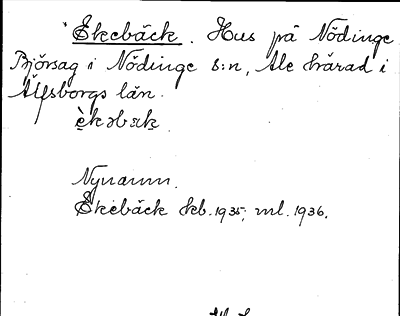 Ekebäck. Hus på Nödinge
Björsag i Nödinge s:n, Ale härad i
Älfsborgs län.
Nynamn.
Ekebäck skb. 1935; ml. 1936.